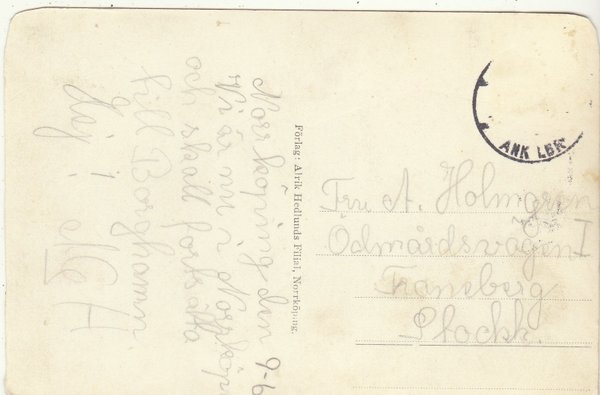 Norrköping den 9-6
Vi är nu i Norrköp
och skall fortsätta
till Borghamn
Hej!
Förlag: Alrik Hedlunds Filial, Norrköping.
ANK LBR
Fru A. Holmgren
Ödmårdsvägen I
Traneberg
Stockh.